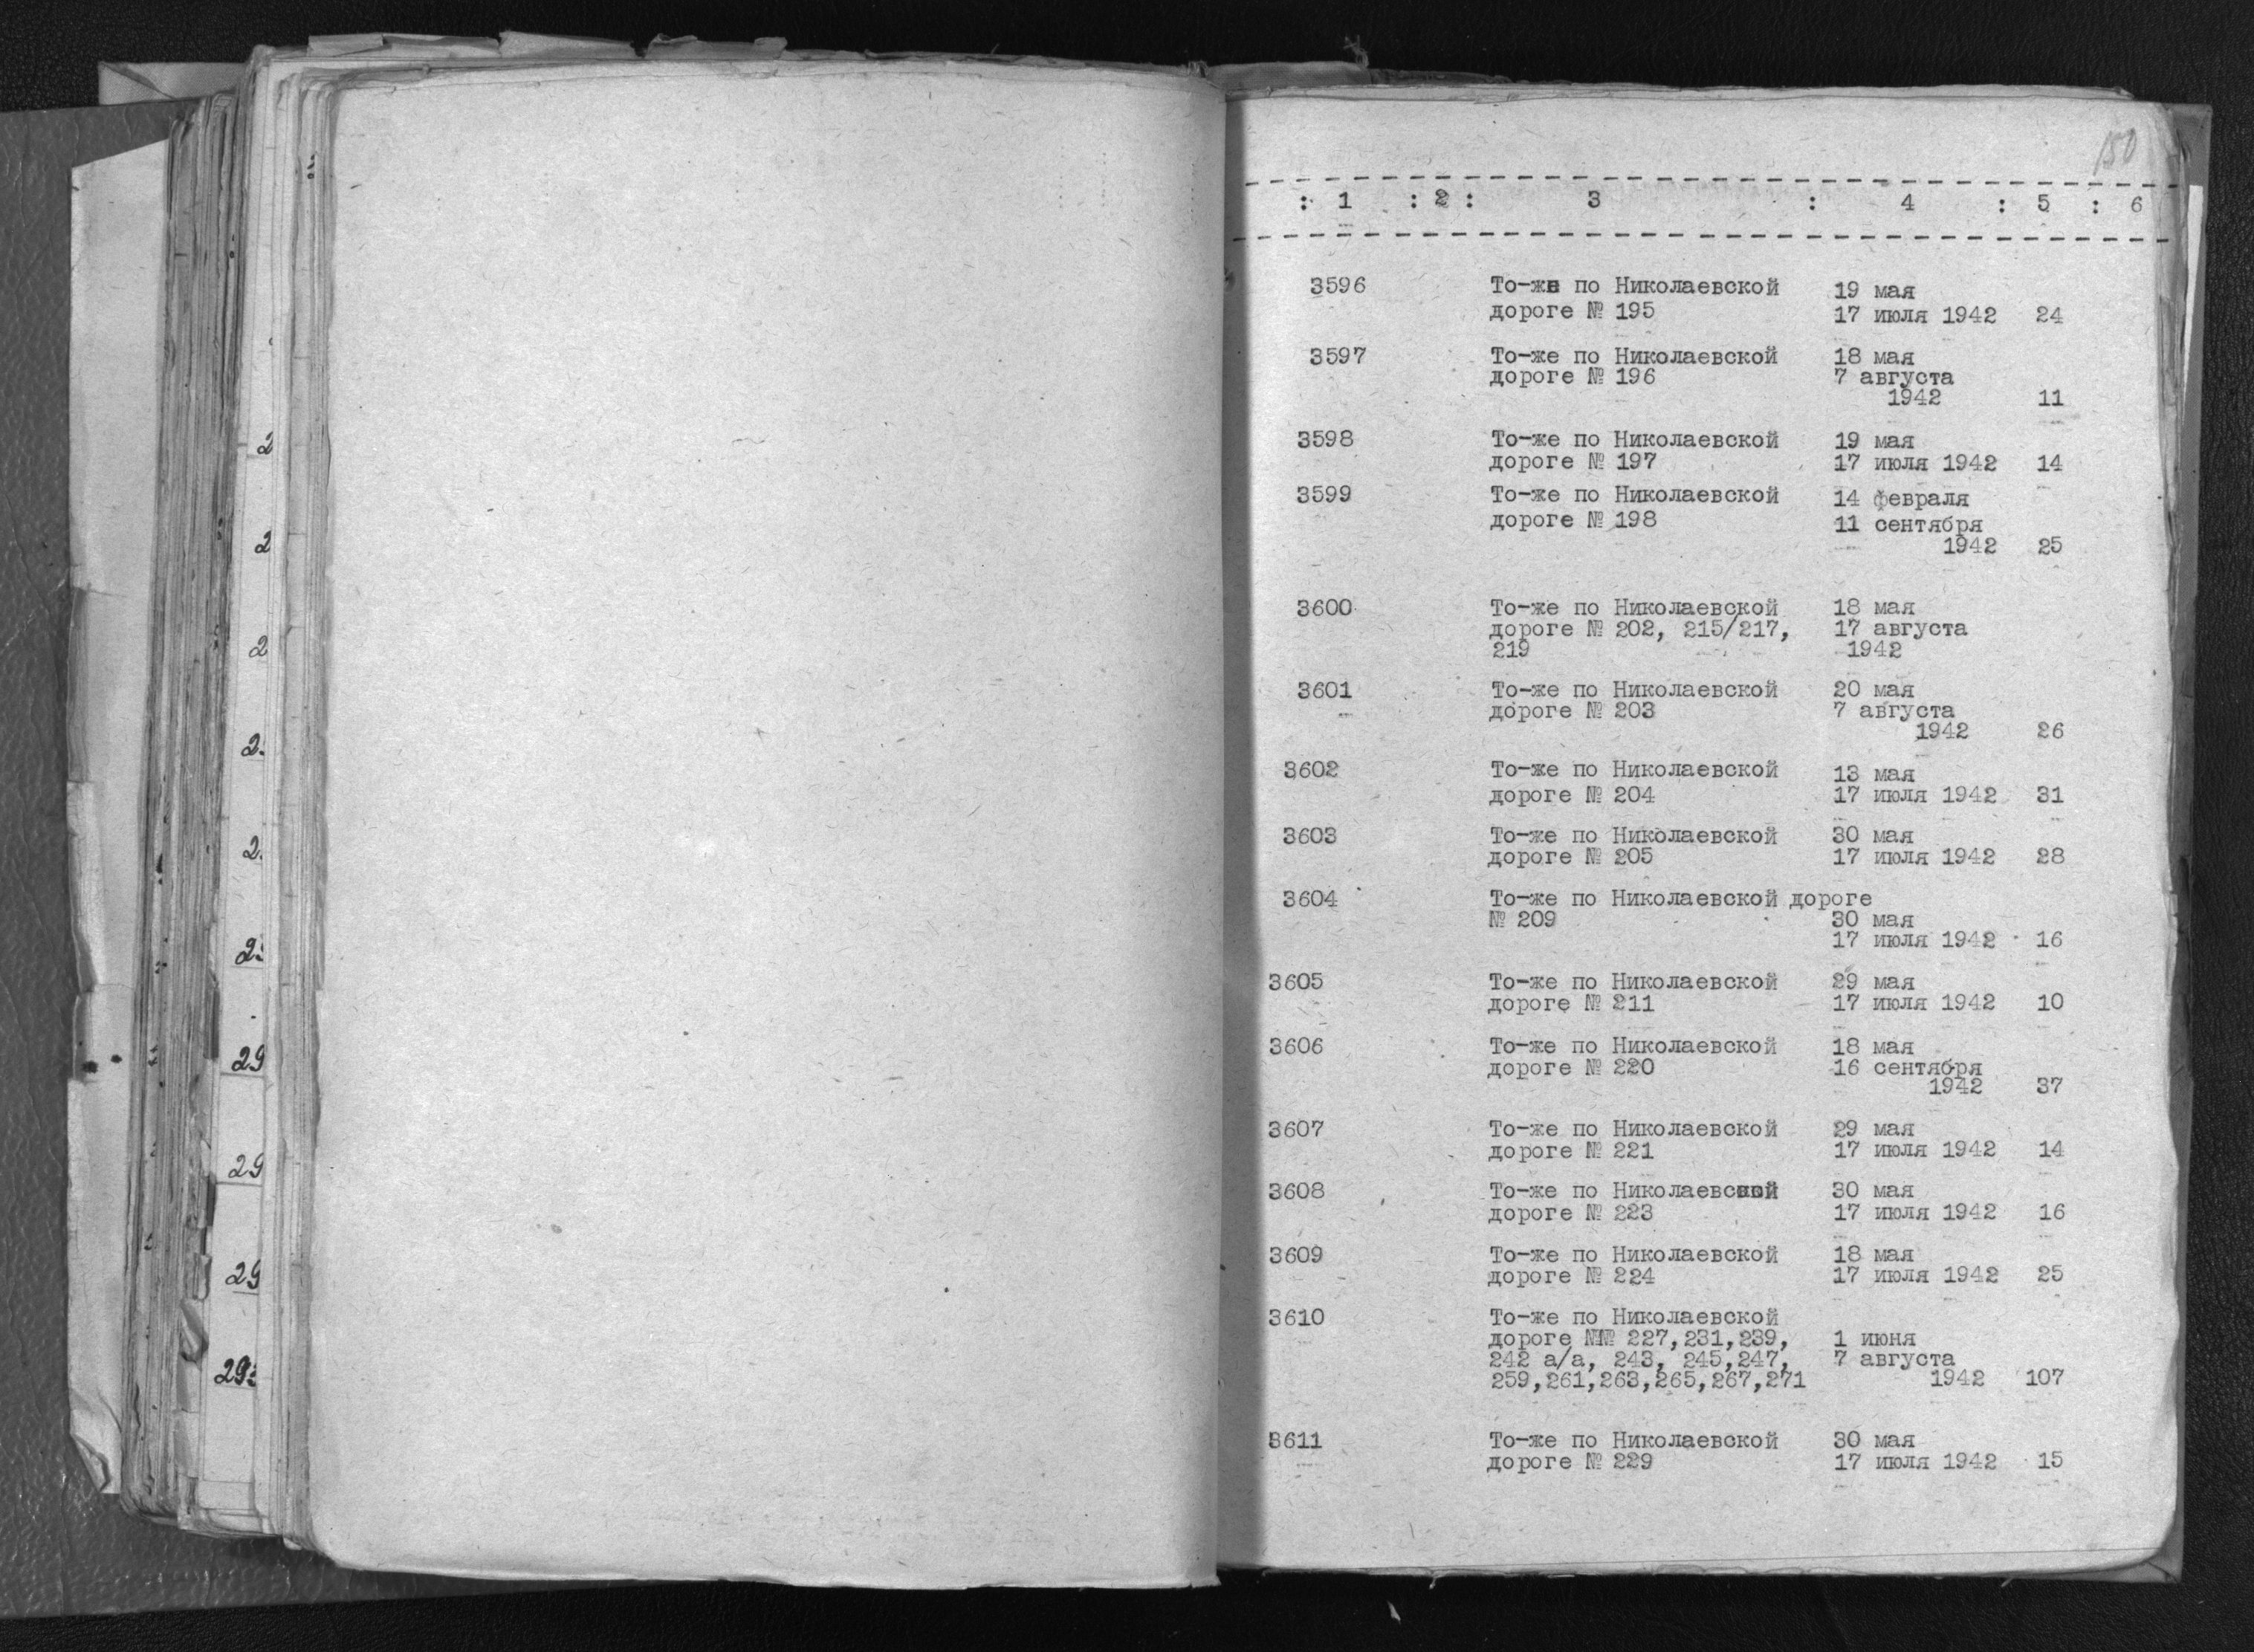 150
: 1 : 2 : 3 : 4 : 5 : 6
3596 То-же по Николаевской 19 мая
дороге № 195 17 июля 1942 24
3597 То-же по Николаевской 18 мая
дороге № 196 7 августа
1942 11
3598 То-же по Николаевской 19 мая
дороге № 197 17 июля 1942 14
3599 То-же по Николаевской 14 февраля
дороге № 198 11 сентября
1942 25
3600 То-же по Николаевской 18 мая
дороге № 202, 215/217, 17 августа
219 1942
3601 То-же по Николаевской 20 мая
дороге № 203 7 августа
1942 26
3602 То-же по Николаевской 13 мая
дороге № 204 17 июля 1942 31
3603 То-же по Николаевской 30 мая
дороге № 205 17 июля 1942 28
3604 То-же по Николаевской дороге
№ 209 30 мая
17 июля 1942 16
3605 То-же по Николаевской 29 мая
дороге № 211 17 июля 1942 10
3606 То-же по Николаевской 18 мая
дороге № 220 16 сентября
1942 37
3607 То-же по Николаевской 29 мая
дороге № 221 17 июля 1942 14
3608 То-же по Николаевской 30 мая
дороге № 223 17 июля 1942 16
3609 То-же по Николаевской 18 мая
дороге № 224 17 июля 1942 25
3610 То-же по Николаевской
дороге №№ 227,231,239, 1 июня
242 а/а, 243, 245,247, 7 августа
259,261,263,265,267,271 1942 107
3611 То-же по Николаевской 30 мая
дороге № 229 17 июля 1942 15